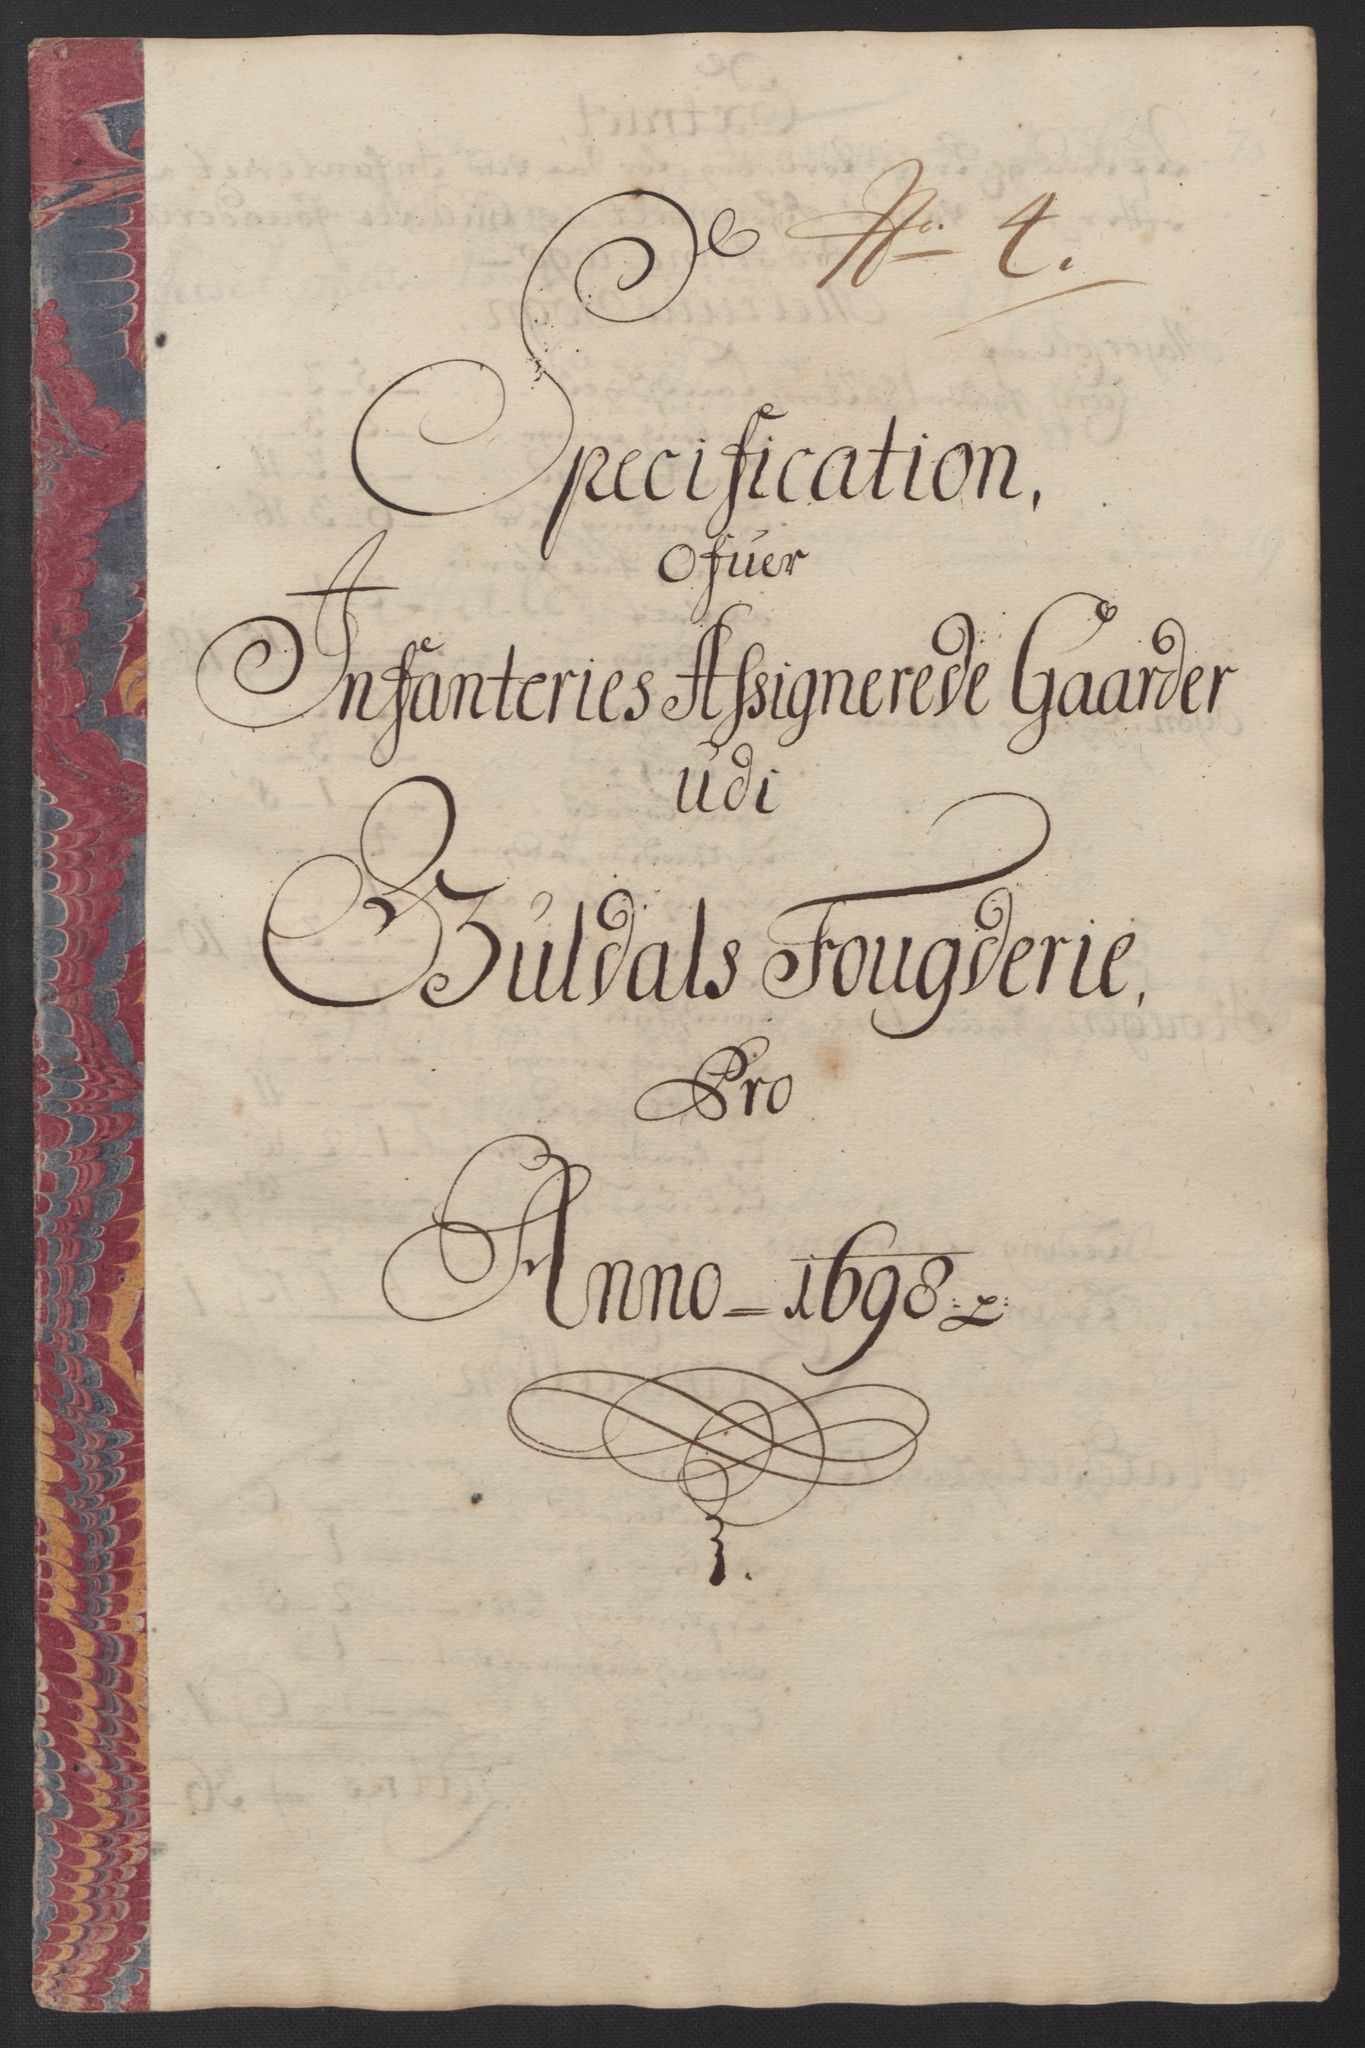 No. 4.
Specification,
ofuer
Infanteries Assignerede Gaarder
udi
Guldals Fougderie,
Pro
Anno 1698